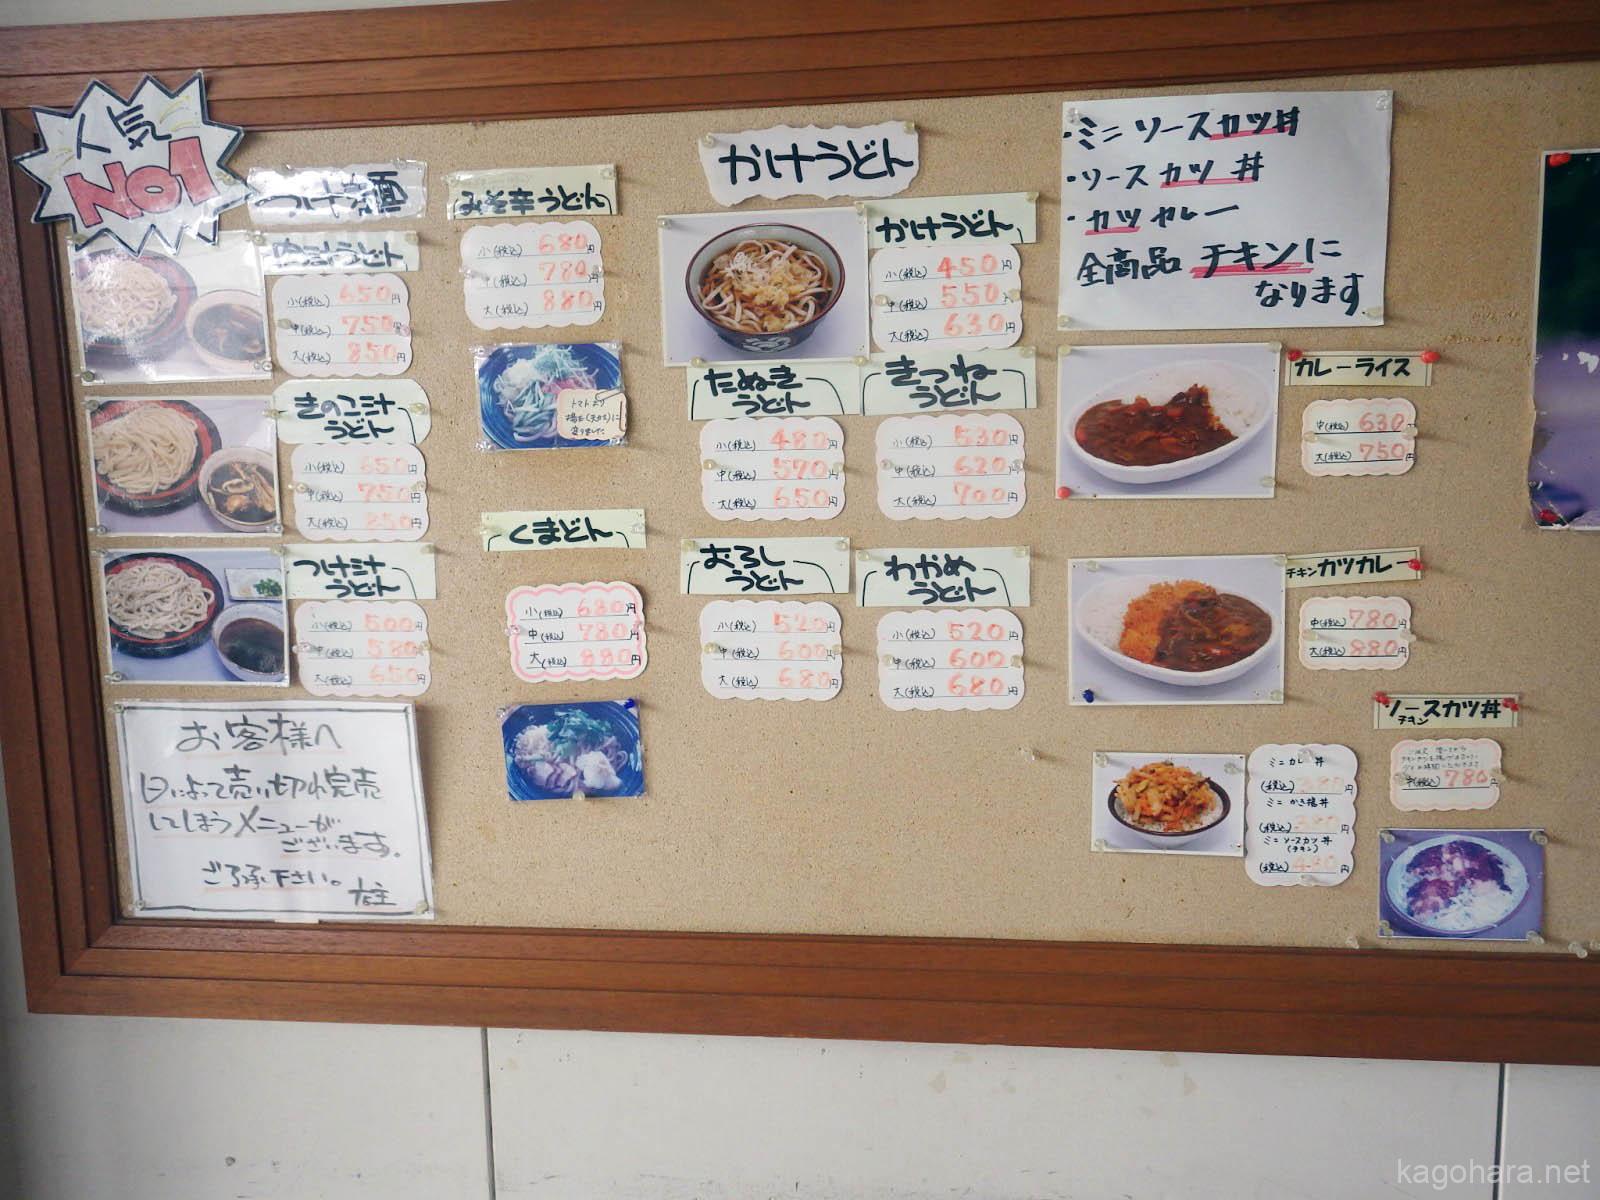 人気
No1
つけ麺
肉汁うどん
小(税込) 650円
中(税込) 750円
大(税込) 850円
きのこ汁
うどん
小(税込) 650円
中(税込) 750円
大(税込) 850円
つけ汁
うどん
小(税込) 500円
中(税込) 580円
大(税込) 650円
お客様へ
日によって売り切れ完売
してしまうメニューが
ございます。
ご了承下さい。
店主
みそ辛うどん
小(税込) 680円
中(税込) 780円
大(税込) 880円
トマトより
揚玉(天かす)に
変りました
くまどん
小(税込) 680円
中(税込) 780円
大(税込) 880円
かけうどん
かけうどん
小(税込) 450円
中(税込) 550円
大(税込) 630円
たぬき
うどん
小(税込) 480円
中(税込) 570円
大(税込) 650円
きつね
うどん
小(税込) 530円
中(税込) 620円
大(税込) 700円
おろし
うどん
小(税込) 520円
中(税込) 600円
大(税込) 680円
わかめ
うどん
小(税込) 520円
中(税込) 600円
大(税込) 680円
・ミニソースカツ丼
・ソースカツ丼
・カツカレー
全商品チキンに
なります
カレーライス
中(税込) 630円
大(税込) 750円
チキンカツカレー
中(税込) 780円
大(税込) 880円
ミニカレー丼
(税込) 380円
ミニかき揚丼
(税込) 380円
ミニソースカツ丼
(チキン)
(税込) 430円
ソースカツ丼
チキン
中(税込) 780円
kagohara.net